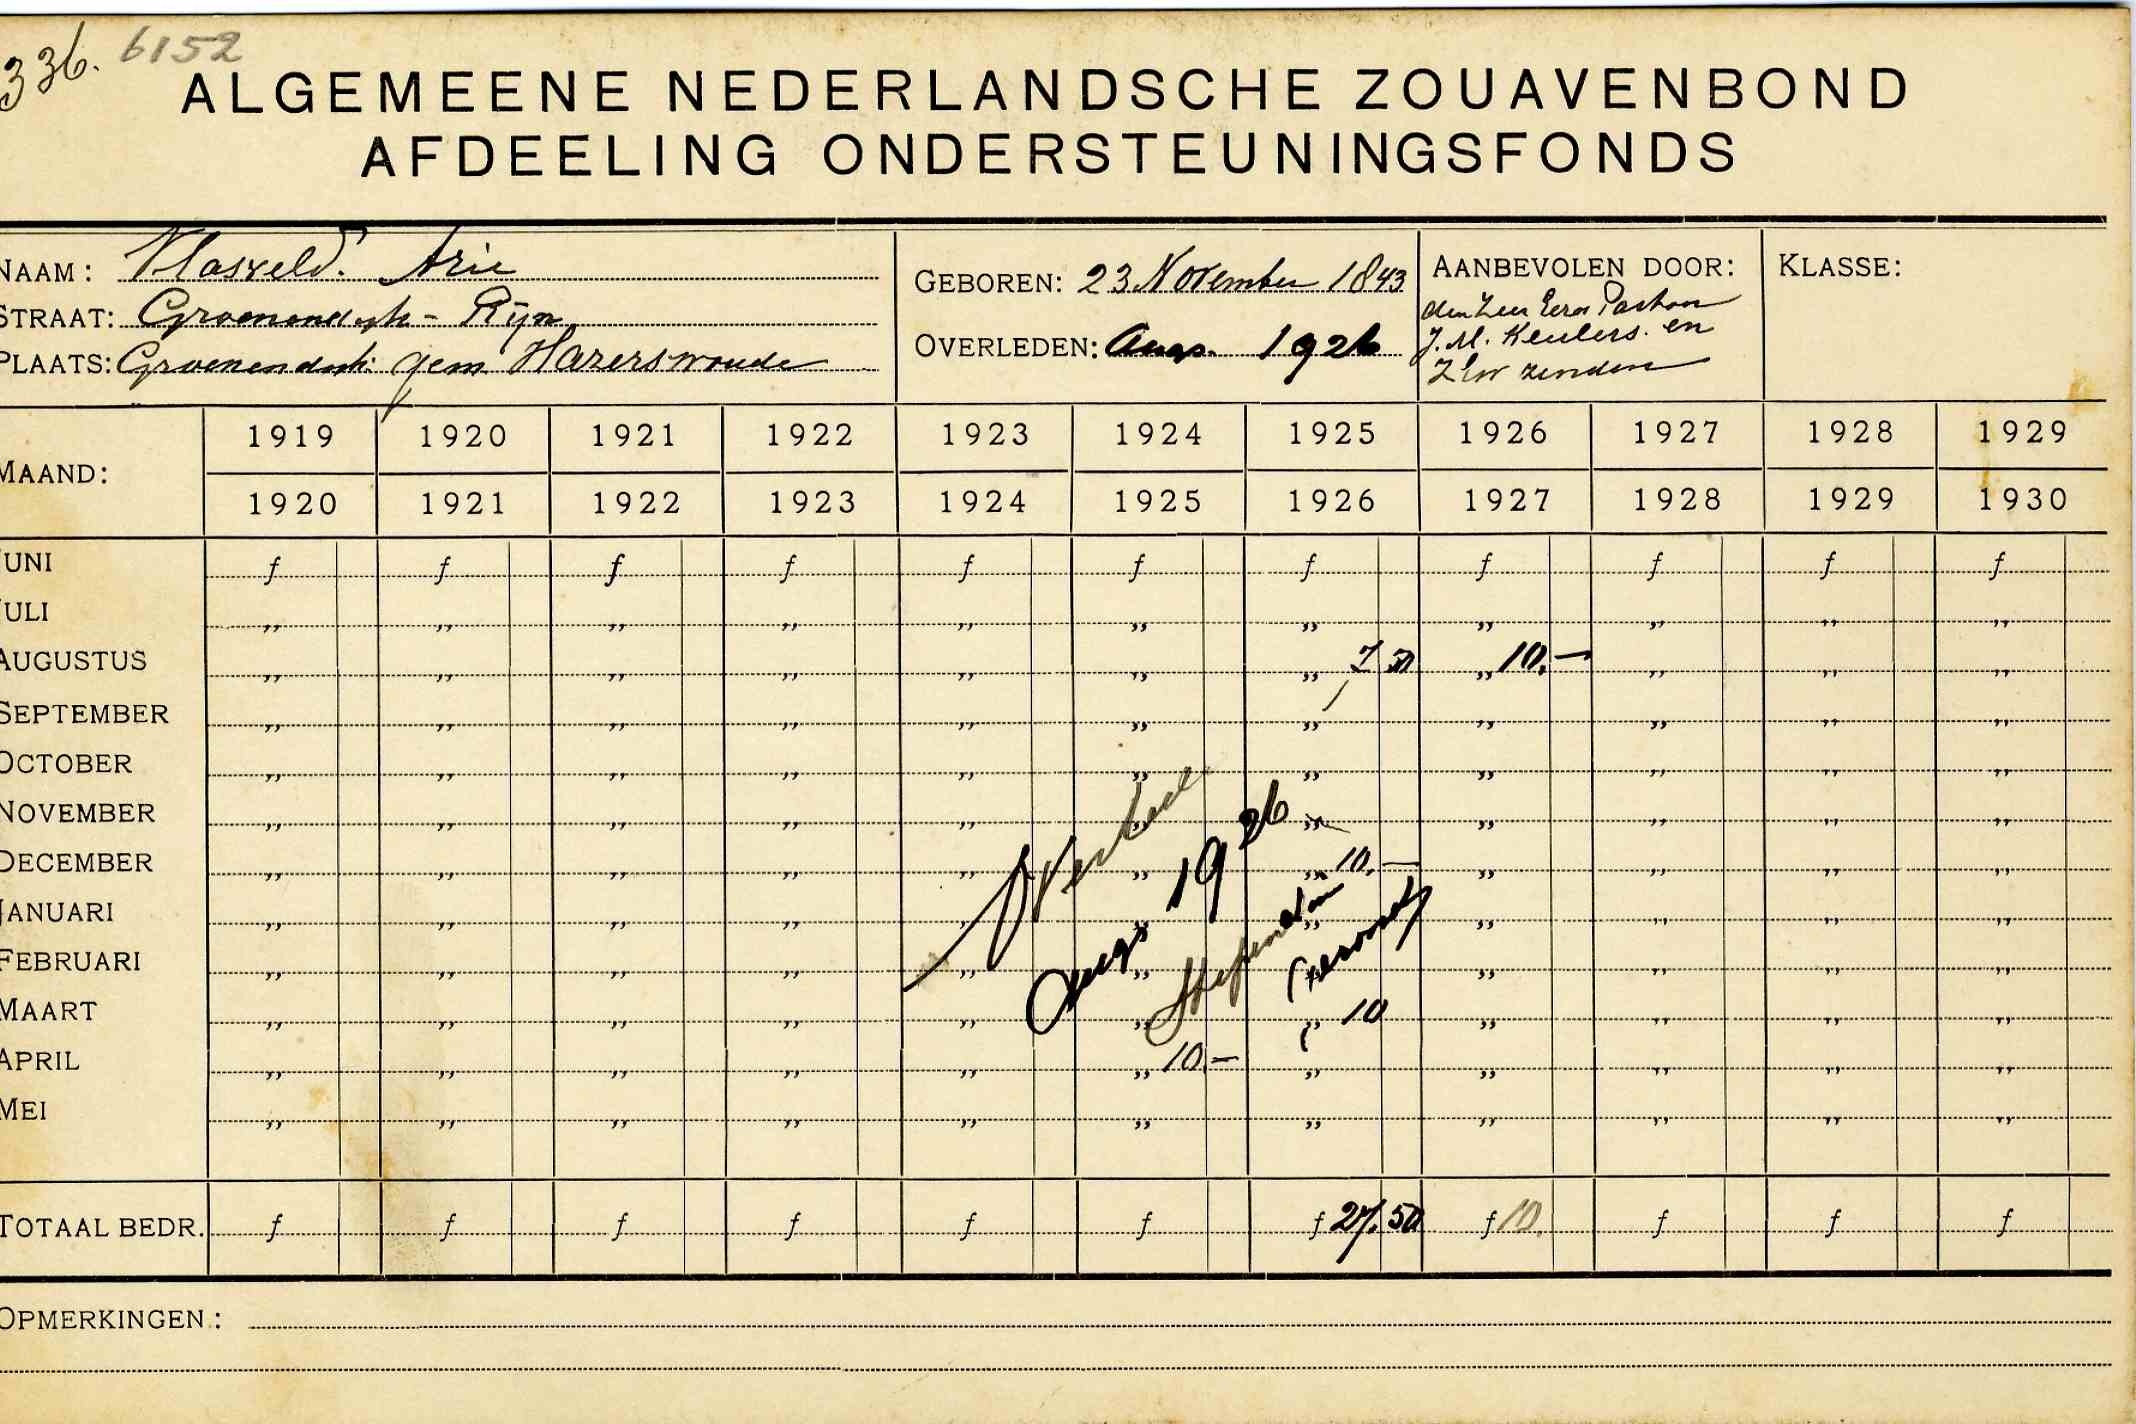 336. 6152
ALGEMEENE NEDERLANDSCHE ZOUAVENBOND
AFDEELING ONDERSTEUNINGSFONDS
NAAM: Vlasveld. Arie
STRAAT: Groenendijk - Rijn
PLAATS: Groenendijk gem Hazerswoude
GEBOREN: 23 November 1843
OVERLEDEN: Augs. 1926
AANBEVOLEN DOOR:
den Zeer Eerw Pastoor
J. M. Keulers. en
KLASSE:
MAAND:
1919 1920 1921 1922 1923 1924 1925 1926 1927 1928 1929
1920 1921 1922 1923 1924 1925 1926 1927 1928 1929 1930
JUNI f f f f f f f f f f f
JULI „ „ „ „ „ „ „ „ „ „ „
AUGUSTUS „ „ „ „ „ „ „ 7 50 „ 10.— „ „ „
SEPTEMBER „ „ „ „ „ „ „ „ „ „ „
OCTOBER „ „ „ „ „ „ „ „ „ „ „
NOVEMBER „ „ „ „ „ „ „ „ „ „ „
DECEMBER „ „ „ „ „ „ „ 10.— „ „ „ „
JANUARI „ „ „ „ „ „ „ „ „ „ „
FEBRUARI „ „ „ „ „ „ „ „ „ „ „
MAART „ „ „ „ „ „ „ 10 „ „ „ „
APRIL „ „ „ „ „ „ 10.— „ „ „ „ „
MEI „ „ „ „ „ „ „ „ „ „ „
Overleed
Augs 1926
TOTAAL BEDR. f f f f f f f 27.50 f 10. f f f
OPMERKINGEN: